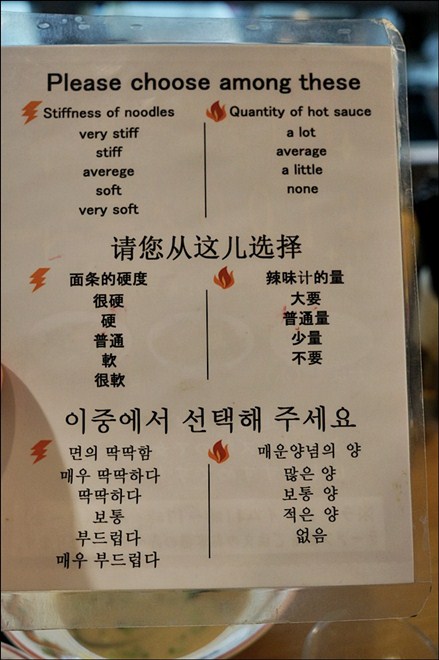 Please choose among these
Stiffness of noodles
very stiff
stiff
averege
soft
very soft
Quantity of hot sauce
a lot
average
a little
none
请您从这儿选择
面条的硬度
很硬
硬
普通
軟
很軟
辣味计的量
大要
普通量
少量
不要
이중에서 선택해 주세요
면의 딱딱함
매우 딱딱하다
딱딱하다
보통
부드럽다
매우 부드럽다
매운양념의 양
많은 양
보통 양
적은 양
없음